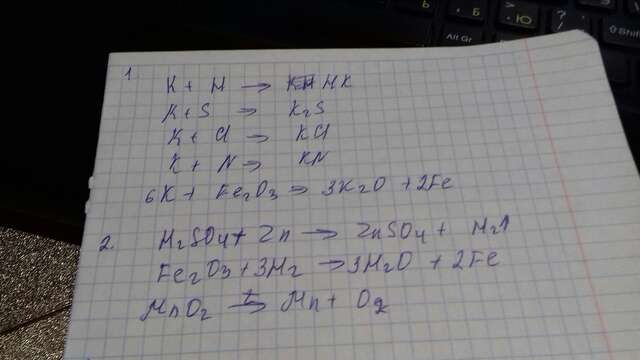 Ь Б Ю ?
Alt Gr Shift
1
K + H → HK
K + S → K₂S
K + Cl → KCl
K + N → KN
6K + Fe₂O₃ → 3K₂O + 2Fe
2. H₂SO₄ + Zn → ZnSO₄ + H₂↑
Fe₂O₃ + 3H₂ → 3H₂O + 2Fe
MnO₂ →ᵗ Mn + O₂